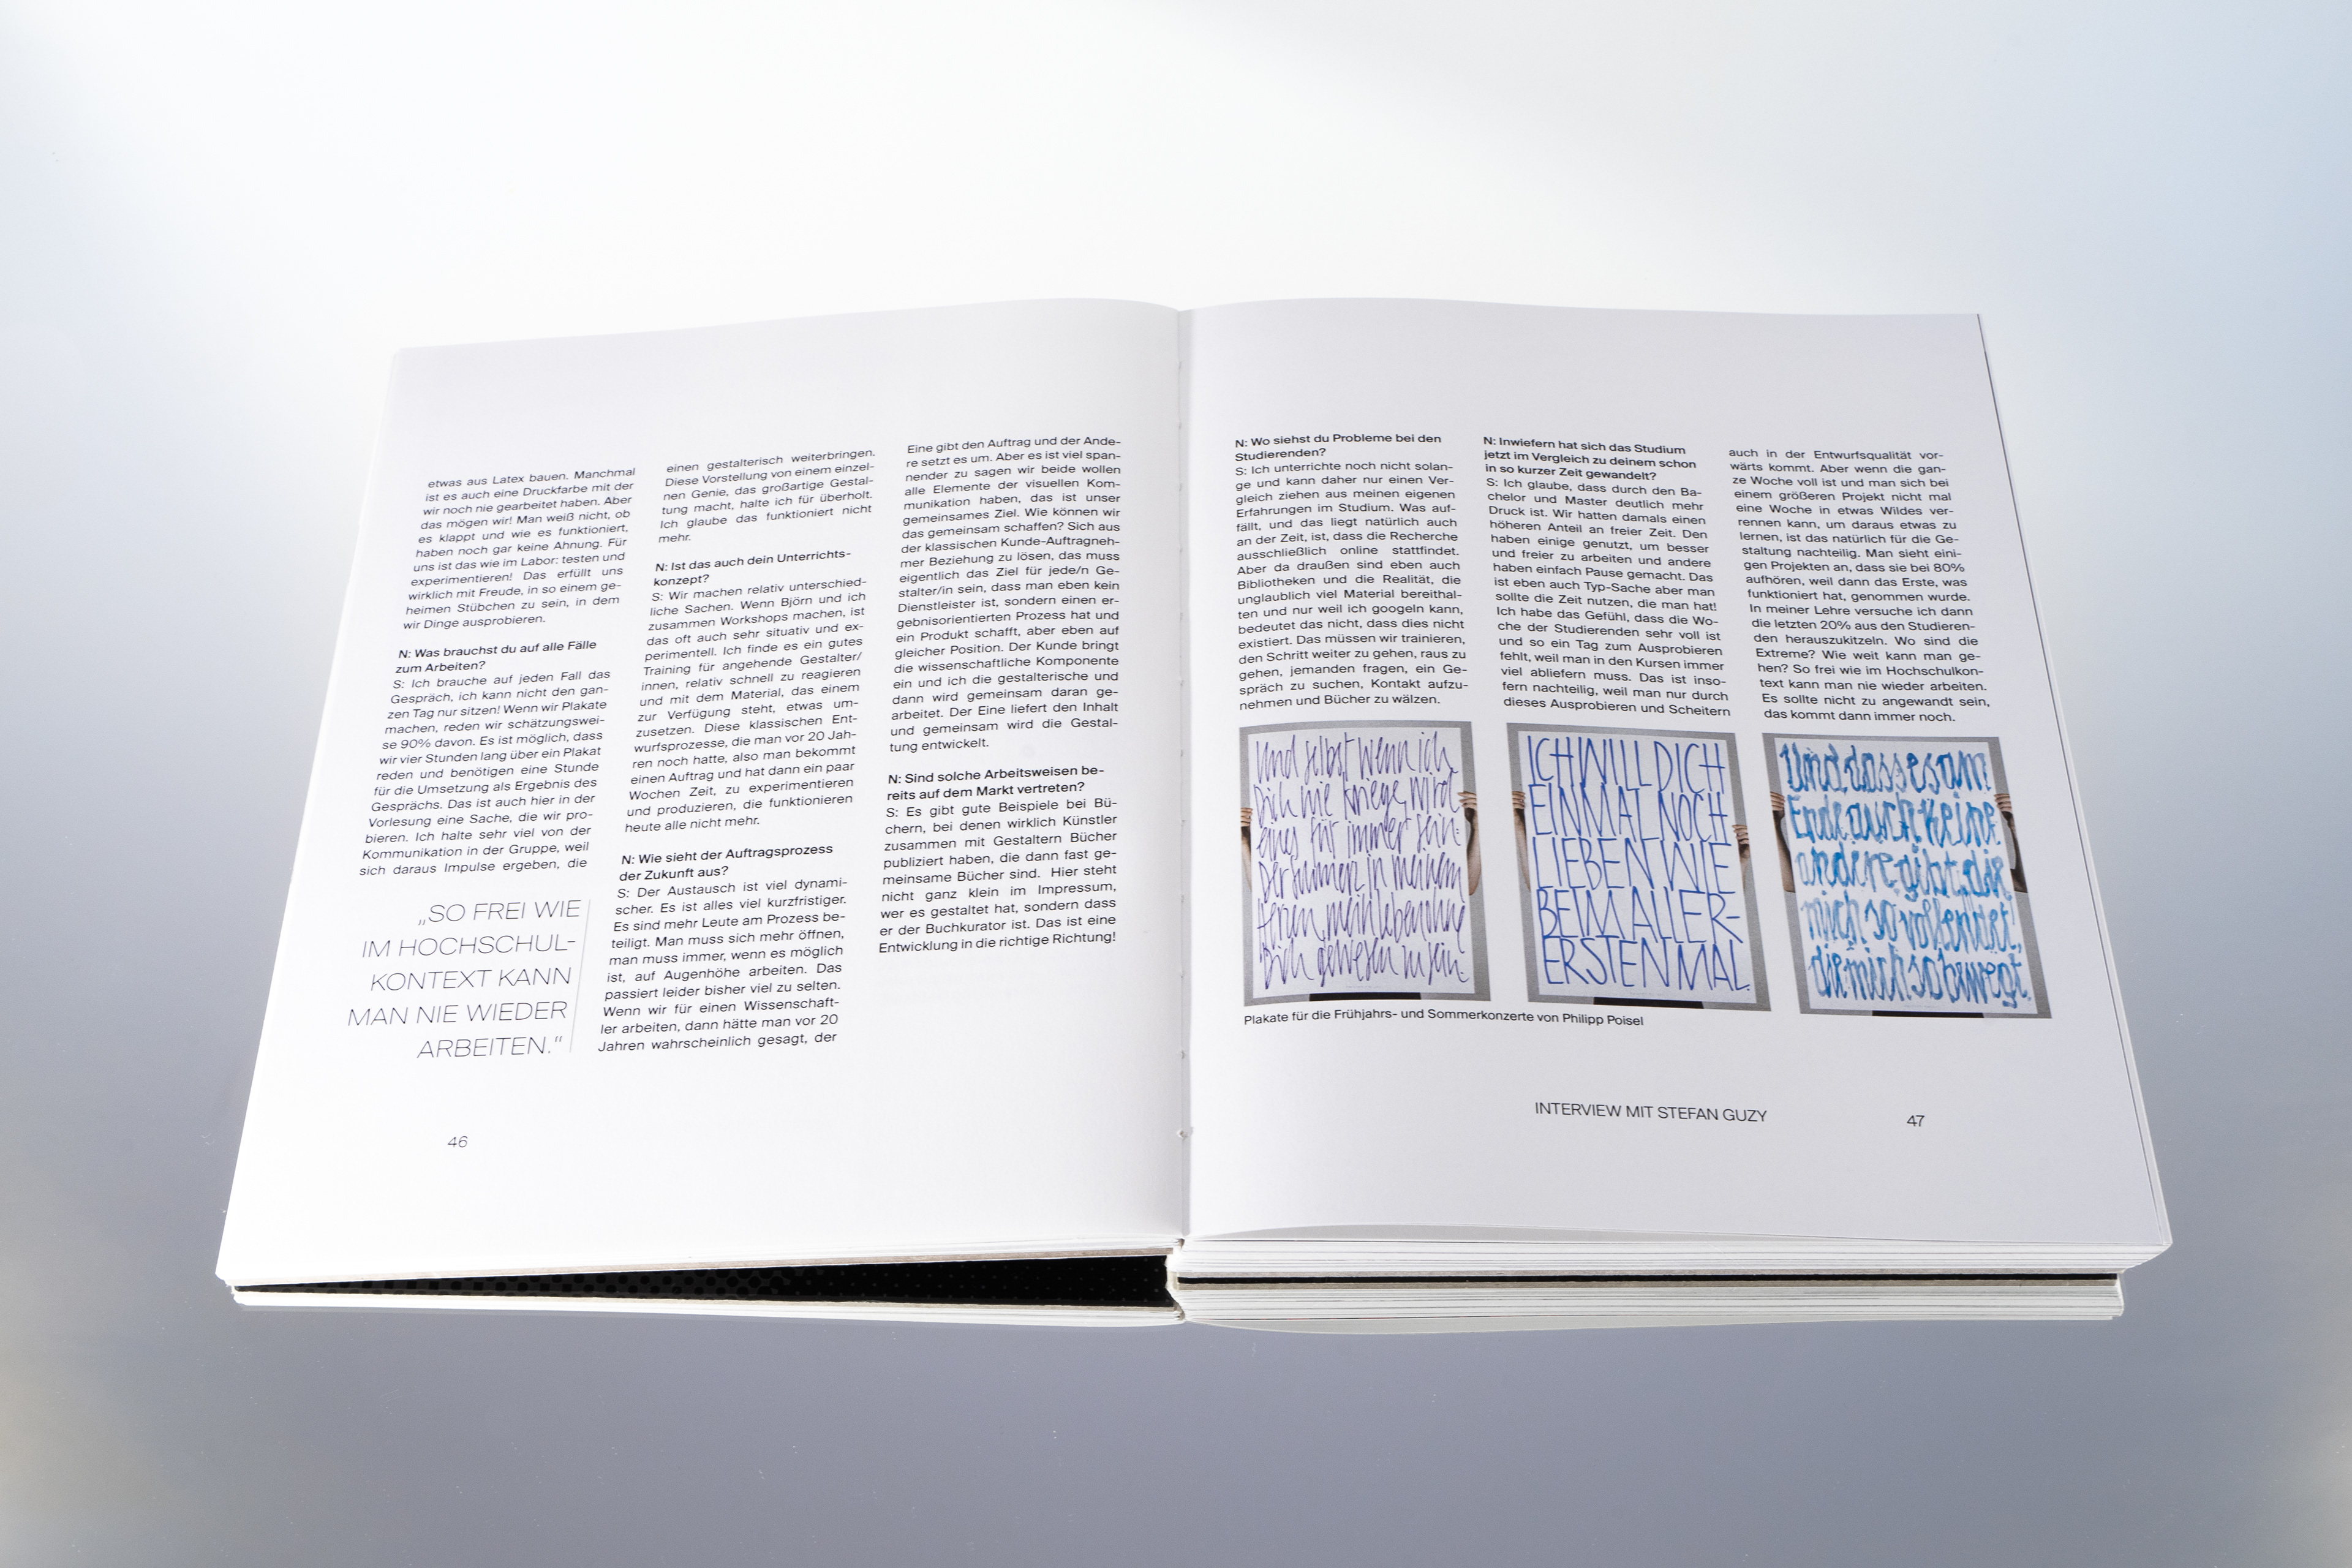 etwas aus Latex bauen. Manchmal
ist es auch eine Druckfarbe mit der
wir noch nie gearbeitet haben. Aber
das mögen wir! Man weiß nicht, ob
es klappt und wie es funktioniert,
haben noch gar keine Ahnung. Für
uns ist das wie im Labor: testen und
experimentieren! Das erfüllt uns
wirklich mit Freude, in so einem ge-
heimen Stübchen zu sein, in dem
wir Dinge ausprobieren.
N: Was brauchst du auf alle Fälle
zum Arbeiten?
S: Ich brauche auf jeden Fall das
Gespräch, ich kann nicht den gan-
zen Tag nur sitzen! Wenn wir Plakate
machen, reden wir schätzungswei-
se 90% davon. Es ist möglich, dass
wir vier Stunden lang über ein Plakat
reden und benötigen eine Stunde
für die Umsetzung als Ergebnis des
Gesprächs. Das ist auch hier in der
Vorlesung eine Sache, die wir pro-
bieren. Ich halte sehr viel von der
Kommunikation in der Gruppe, weil
sich daraus Impulse ergeben, die
„SO FREI WIE
IM HOCHSCHUL-
KONTEXT KANN
MAN NIE WIEDER
ARBEITEN.“
46
einen gestalterisch weiterbringen.
Diese Vorstellung von einem einzel-
nen Genie, das großartige Gestal-
tung macht, halte ich für überholt.
Ich glaube das funktioniert nicht
mehr.
N: Ist das auch dein Unterrichts-
konzept?
S: Wir machen relativ unterschied-
liche Sachen. Wenn Björn und ich
zusammen Workshops machen, ist
das oft auch sehr situativ und ex-
perimentell. Ich finde es ein gutes
Training für angehende Gestalter/
innen, relativ schnell zu reagieren
und mit dem Material, das einem
zur Verfügung steht, etwas um-
zusetzen. Diese klassischen Ent-
wurfsprozesse, die man vor 20 Jah-
ren noch hatte, also man bekommt
einen Auftrag und hat dann ein paar
Wochen Zeit, zu experimentieren
und produzieren, die funktionieren
heute alle nicht mehr.
N: Wie sieht der Auftragsprozess
der Zukunft aus?
S: Der Austausch ist viel dynami-
scher. Es ist alles viel kurzfristiger.
Es sind mehr Leute am Prozess be-
teiligt. Man muss sich mehr öffnen,
man muss immer, wenn es möglich
ist, auf Augenhöhe arbeiten. Das
passiert leider bisher viel zu selten.
Wenn wir für einen Wissenschaft-
ler arbeiten, dann hätte man vor 20
Jahren wahrscheinlich gesagt, der
Eine gibt den Auftrag und der Ande-
re setzt es um. Aber es ist viel span-
nender zu sagen wir beide wollen
alle Elemente der visuellen Kom-
munikation haben, das ist unser
gemeinsames Ziel. Wie können wir
das gemeinsam schaffen? Sich aus
der klassischen Kunde-Auftragneh-
mer Beziehung zu lösen, das muss
eigentlich das Ziel für jede/n Ge-
stalter/in sein, dass man eben kein
Dienstleister ist, sondern einen er-
gebnisorientierten Prozess hat und
ein Produkt schafft, aber eben auf
gleicher Position. Der Kunde bringt
die wissenschaftliche Komponente
ein und ich die gestalterische und
dann wird gemeinsam daran ge-
arbeitet. Der Eine liefert den Inhalt
und gemeinsam wird die Gestal-
tung entwickelt.
N: Sind solche Arbeitsweisen be-
reits auf dem Markt vertreten?
S: Es gibt gute Beispiele bei Bü-
chern, bei denen wirklich Künstler
zusammen mit Gestaltern Bücher
publiziert haben, die dann fast ge-
meinsame Bücher sind. Hier steht
nicht ganz klein im Impressum,
wer es gestaltet hat, sondern dass
er der Buchkurator ist. Das ist eine
Entwicklung in die richtige Richtung!
N: Wo siehst du Probleme bei den
Studierenden?
S: Ich unterrichte noch nicht solan-
ge und kann daher nur einen Ver-
gleich ziehen aus meinen eigenen
Erfahrungen im Studium. Was auf-
fällt, und das liegt natürlich auch
an der Zeit, ist, dass die Recherche
ausschließlich online stattfindet.
Aber da draußen sind eben auch
Bibliotheken und die Realität, die
unglaublich viel Material bereithal-
ten und nur weil ich googeln kann,
bedeutet das nicht, dass dies nicht
existiert. Das müssen wir trainieren,
den Schritt weiter zu gehen, raus zu
gehen, jemanden fragen, ein Ge-
spräch zu suchen, Kontakt aufzu-
nehmen und Bücher zu wälzen.
N: Inwiefern hat sich das Studium
jetzt im Vergleich zu deinem schon
in so kurzer Zeit gewandelt?
S: Ich glaube, dass durch den Ba-
chelor und Master deutlich mehr
Druck ist. Wir hatten damals einen
höheren Anteil an freier Zeit. Den
haben einige genutzt, um besser
und freier zu arbeiten und andere
haben einfach Pause gemacht. Das
ist eben auch Typ-Sache aber man
sollte die Zeit nutzen, die man hat!
Ich habe das Gefühl, dass die Wo-
che der Studierenden sehr voll ist
und so ein Tag zum Ausprobieren
fehlt, weil man in den Kursen immer
viel abliefern muss. Das ist inso-
fern nachteilig, weil man nur durch
dieses Ausprobieren und Scheitern
auch in der Entwurfsqualität vor-
wärts kommt. Aber wenn die gan-
ze Woche voll ist und man sich bei
einem größeren Projekt nicht mal
eine Woche in etwas Wildes ver-
rennen kann, um daraus etwas zu
lernen, ist das natürlich für die Ge-
staltung nachteilig. Man sieht eini-
gen Projekten an, dass sie bei 80%
aufhören, weil dann das Erste, was
funktioniert hat, genommen wurde.
In meiner Lehre versuche ich dann
die letzten 20% aus den Studieren-
den herauszukitzeln. Wo sind die
Extreme? Wie weit kann man ge-
hen? So frei wie im Hochschulkon-
text kann man nie wieder arbeiten.
Es sollte nicht zu angewandt sein,
das kommt dann immer noch.
Und selbst wenn ich
Dich nie kriege, wird
eines für immer sein:
Der Summer in meinem
Herzen, mein Leben ohne
Dich gewesen zu sein.
ICH WILL DICH
EINMAL NOCH
LIEBEN WIE
BEIM ALLER-
ERSTEN MAL.
Und dass es am
Ende auch keine
andere gibt, die
mich so vollendet,
die mich so bewegt.
Plakate für die Frühjahrs- und Sommerkonzerte von Philipp Poisel
INTERVIEW MIT STEFAN GUZY
47